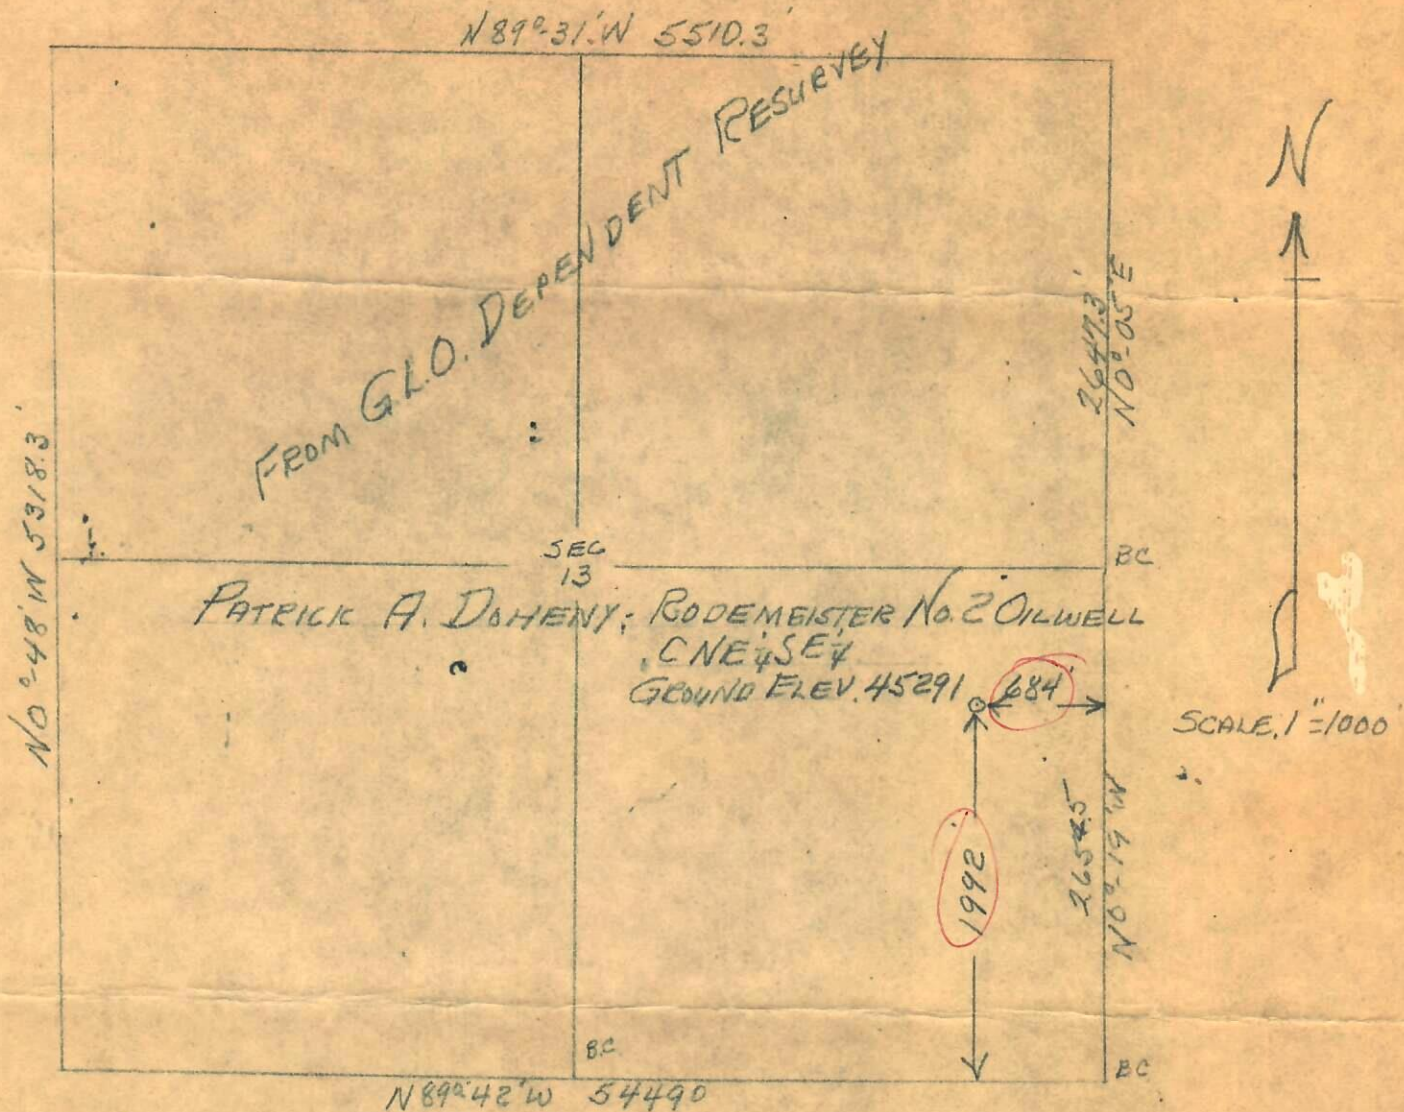 N89°-31'W 5510.3'
FROM G.L.O. DEPENDENT RESURVEY
N
2647.3'
N0°-05'E
N0°-48'W 5318.3'
SEC
13
BC
PATRICK A. DOHENY; RODEMEISTER No. 2 OILWELL
C NE¼SE¼
GROUND ELEV. 45291
684'
SCALE, 1"=1000'
1992
N0°-19'W
B.C.
BC
N89°42'W 54490